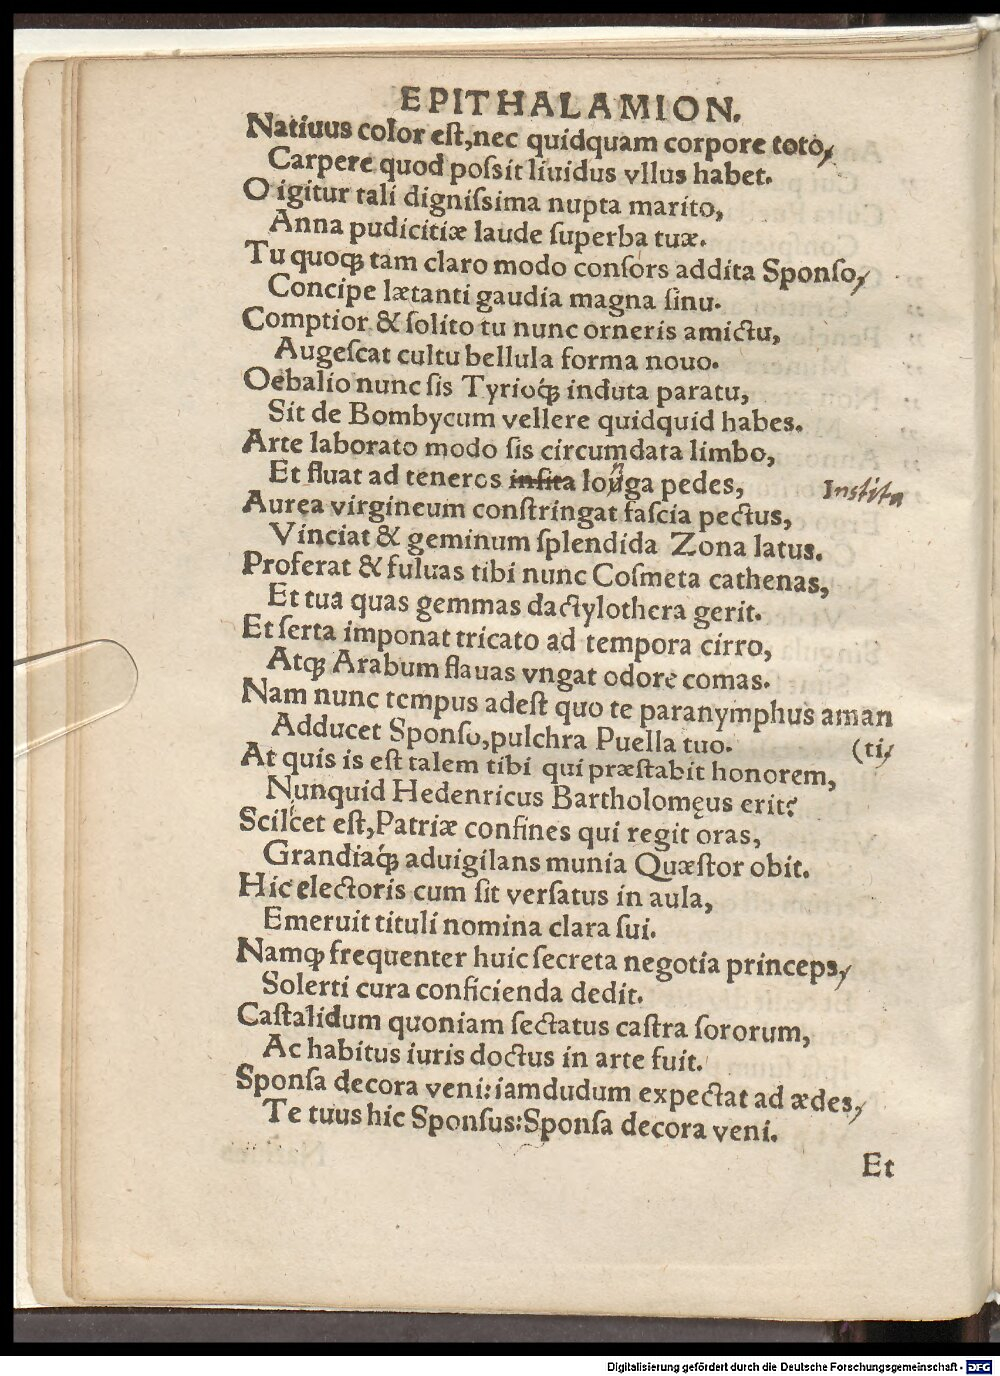 EPITHALAMION.
Natiuus color est,nec quidquam corpore toto,
Carpere quod possit liuidus vllus habet.
O igitur tali dignissima nupta marito,
Anna pudicitiæ laude superba tuæ.
Tu quoqȝ tam claro modo consors addita Sponso,
Concipe lætanti gaudia magna sinu.
Comptior & solito tu nunc orneris amictu,
Augescat cultu bellula forma nouo.
Oebalio nunc sis Tyrioq́ȝ induta paratu,
Sit de Bombycum vellere quidquid habes.
Arte laborato modo sis circumdata limbo,
Et fluat ad teneros insita louga pedes, Instita
n
Aurea virgineum constringat fascia pectus,
Vinciat & geminum splendida Zona latus.
Proferat & fuluas tibi nunc Cosmeta cathenas,
Et tua quas gemmas dactylothera gerit.
Et serta imponat tricato ad tempora cirro,
Atqȝ Arabum flauas vngat odore comas.
Nam nunc tempus adest quo te paranymphus aman
Adducet Sponso,pulchra Puella tuo. (ti,
At quis is est talem tibi qui præstabit honorem,
Nunquid Hedenricus Bartholomęus erit?
Scilcet est,Patriæ confines qui regit oras,
Grandiaq́ȝ aduigilans munia Quæstor obit.
Hic electoris cum sit versatus in aula,
Emeruit tituli nomina clara sui.
Namqȝ frequenter huic secreta negotia princeps,
Solerti cura conficienda dedit.
Castalidum quoniam sectatus castra sororum,
Ac habitus iuris doctus in arte fuit.
Sponsa decora veni:iamdudum expectat ad ædes,
Te tuus hic Sponsus:Sponsa decora veni.
Et
Digitalisierung gefördert durch die Deutsche Forschungsgemeinschaft - DFG